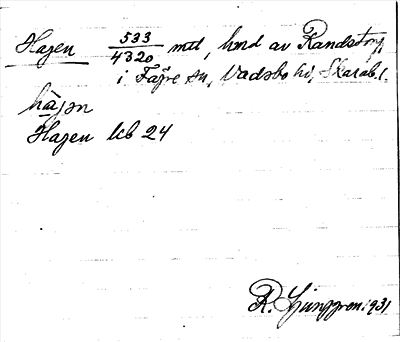 Hagen 533/4320 mtl, hmd av Randstorp
i Fägre sn, Vadsbo hd, Skarab. l.
hàjən
Hagen kb 24
R. Ljunggren 1931